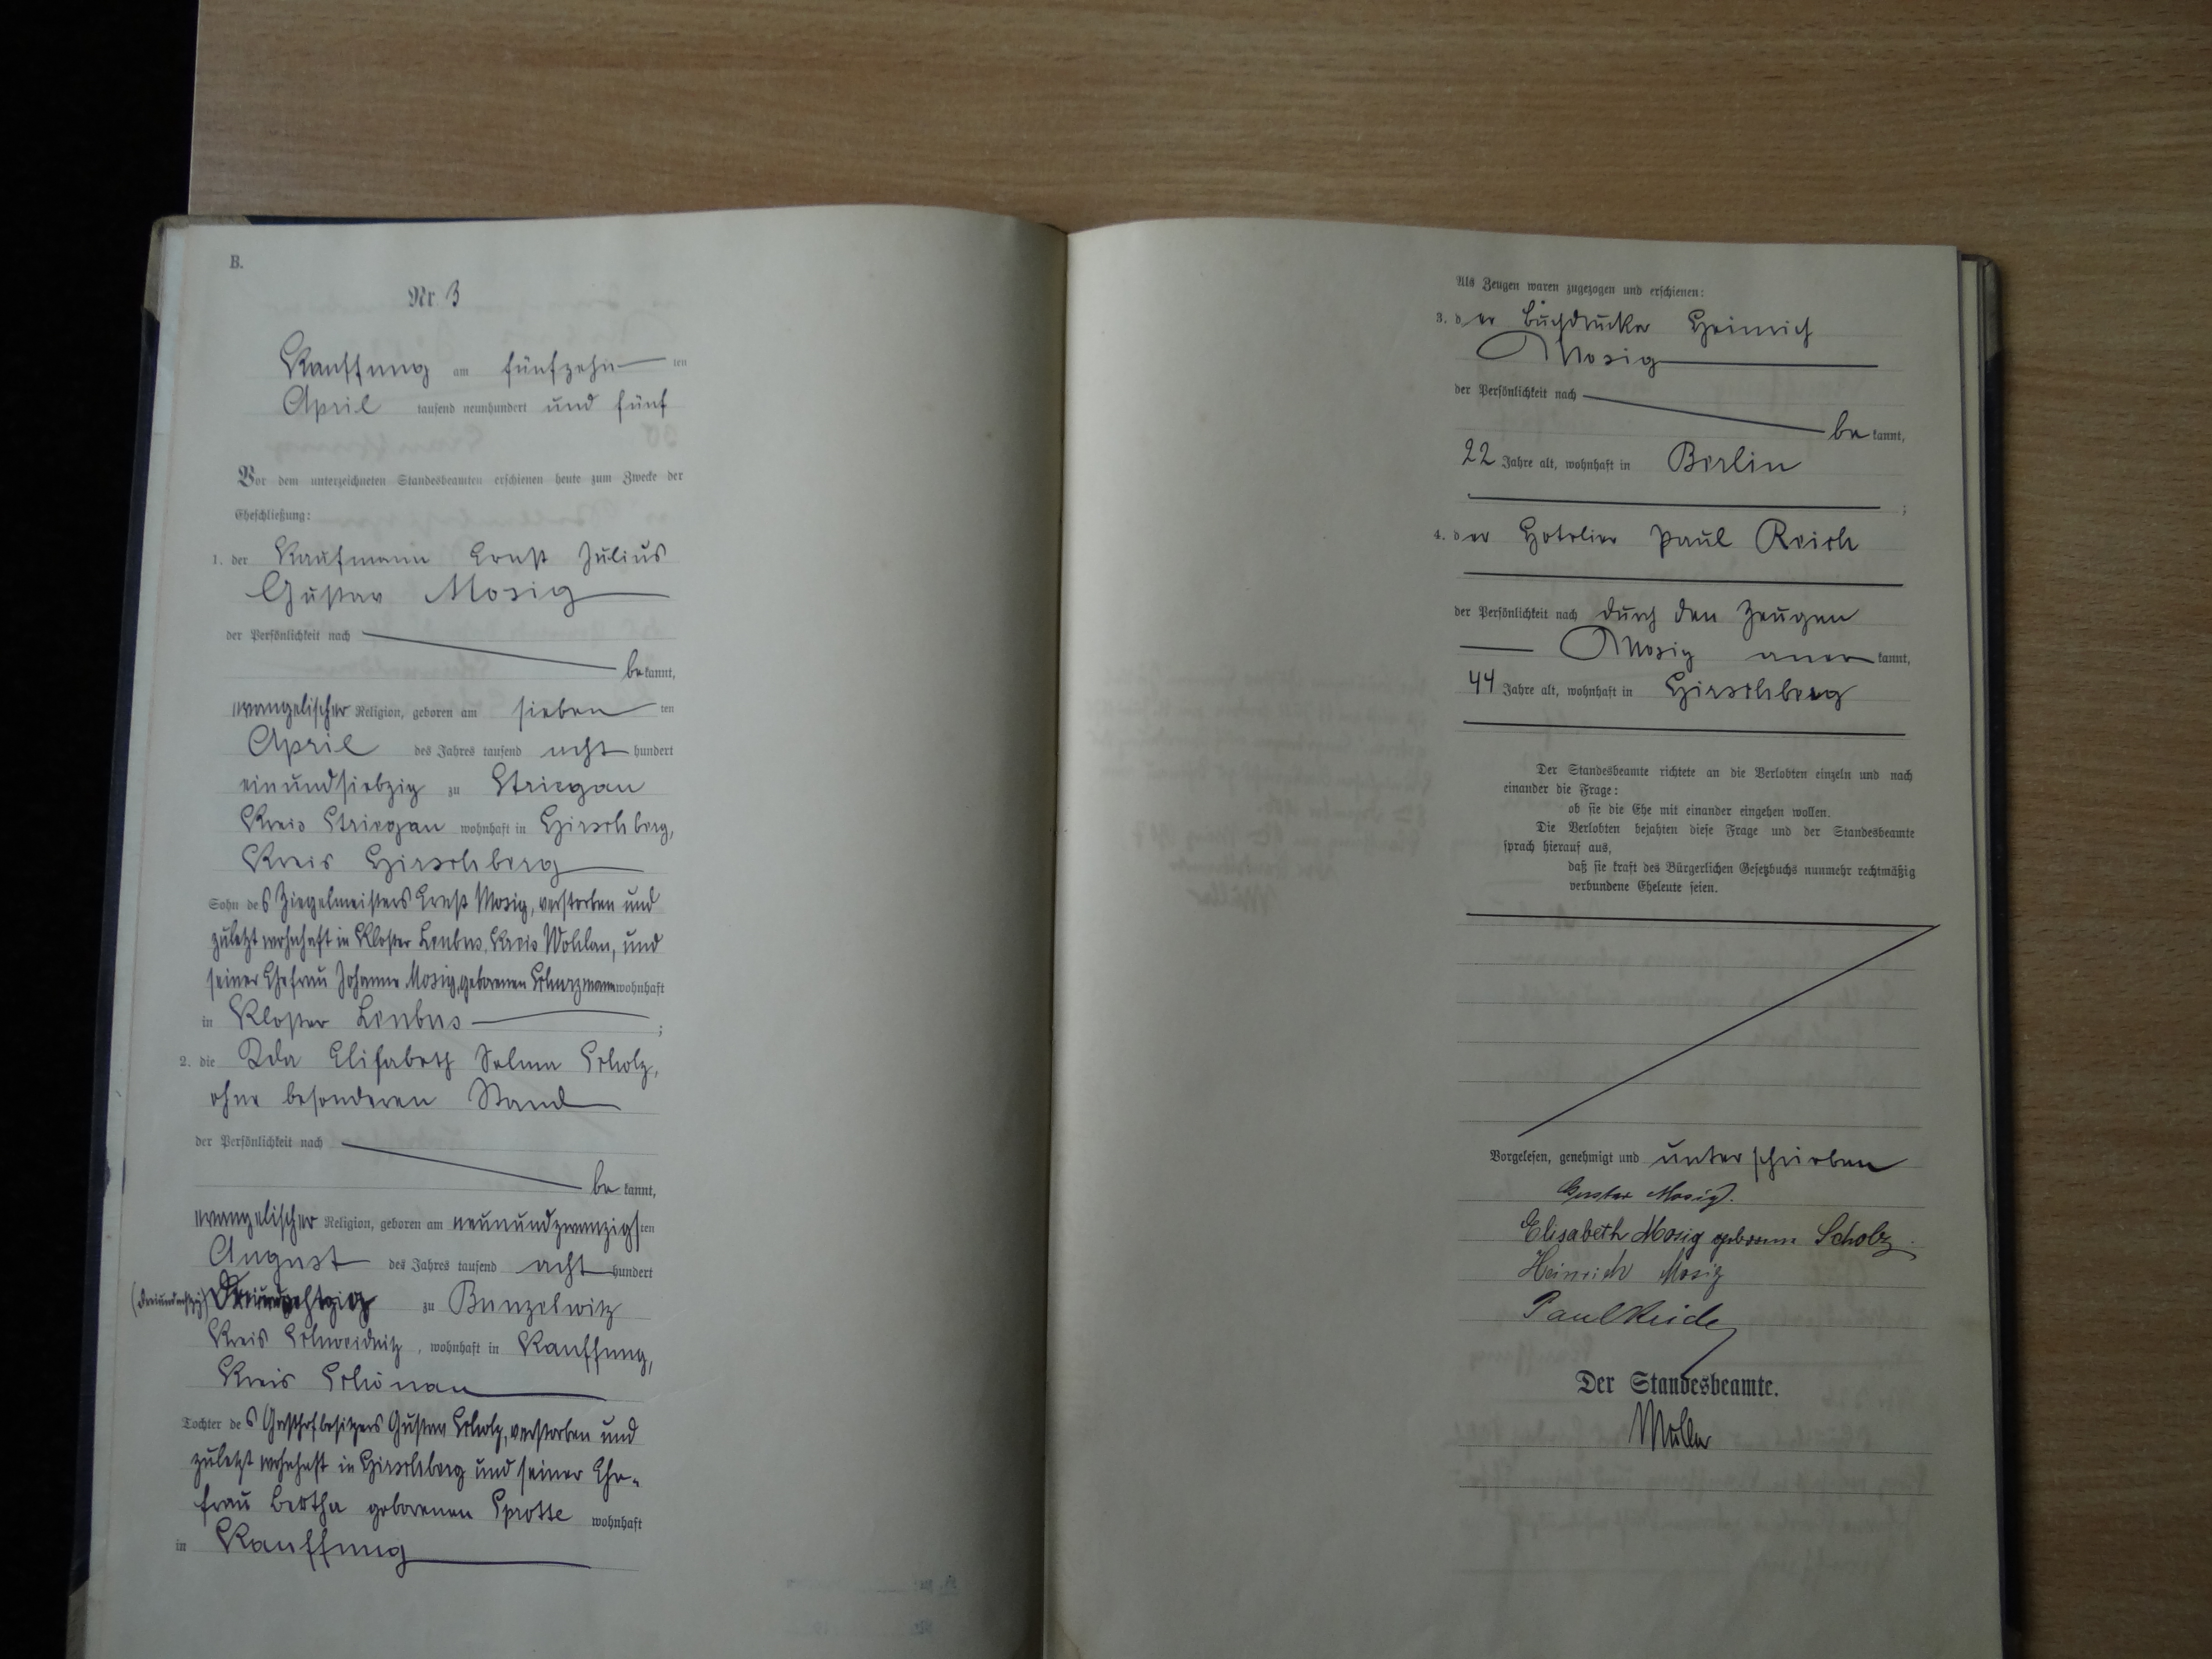 B.
Nr. 3
Kauffung am fünfzehn ten
April tausend neunhundert und fünf
Vor dem unterzeichneten Standesbeamten erschienen heute zum Zwecke der
Eheschließung:
1. der Kaufmann Ernst Julius
Gustav Mosig
der Persönlichkeit nach
be kannt,
evangelischer Religion, geboren am sieben ten
April des Jahres tausend acht hundert
einundsiebzig zu Striegau
Kreis Striegau wohnhaft in Hirschberg,
Kreis Hirschberg
Sohn des Ziegelmeisters Ernst Mosig, verstorben und
zuletzt wohnhaft in Kloster Leubus, Kreis Wohlau, und
seiner Ehefrau Johanne Mosig, geborenen Schwarzmann wohnhaft
in Kloster Leubus ;
2. die Ida Elisabeth Selma Scholz,
ohne besonderen Stand
der Persönlichkeit nach
be kannt,
evangelischer Religion, geboren am neunundzwanzigsten
August des Jahres tausend acht hundert
(dreiundachtzig) dreiundachtzig zu Bunzelwitz
Kreis Schweidnitz, wohnhaft in Kauffung,
Kreis Schönau
Tochter des Gasthofbesitzers Gustav Scholz, verstorben und
zuletzt wohnhaft in Hirschberg und seiner Ehe-
frau Bertha geborenen Sprotte wohnhaft
in Kauffung
Als Zeugen waren zugezogen und erschienen:
3. der Buchdrucker Heinrich
Mosig
der Persönlichkeit nach
be kannt,
22 Jahre alt, wohnhaft in Berlin
;
4. der Hotelier Paul Reich
der Persönlichkeit nach durch den Zeugen
Mosig aner kannt,
44 Jahre alt, wohnhaft in Hirschberg
Der Standesbeamte richtete an die Verlobten einzeln und nach
einander die Frage:
ob sie die Ehe mit einander eingehen wollen.
Die Verlobten bejahten diese Frage und der Standesbeamte
sprach hierauf aus,
daß sie kraft des Bürgerlichen Gesetzbuchs nunmehr rechtmäßig
verbundene Eheleute seien.
Vorgelesen, genehmigt und unterschrieben
Gustav Mosig.
Elisabeth Mosig geborene Scholz.
Heinrich Mosig
Paul Reich
Der Standesbeamte.
Müller